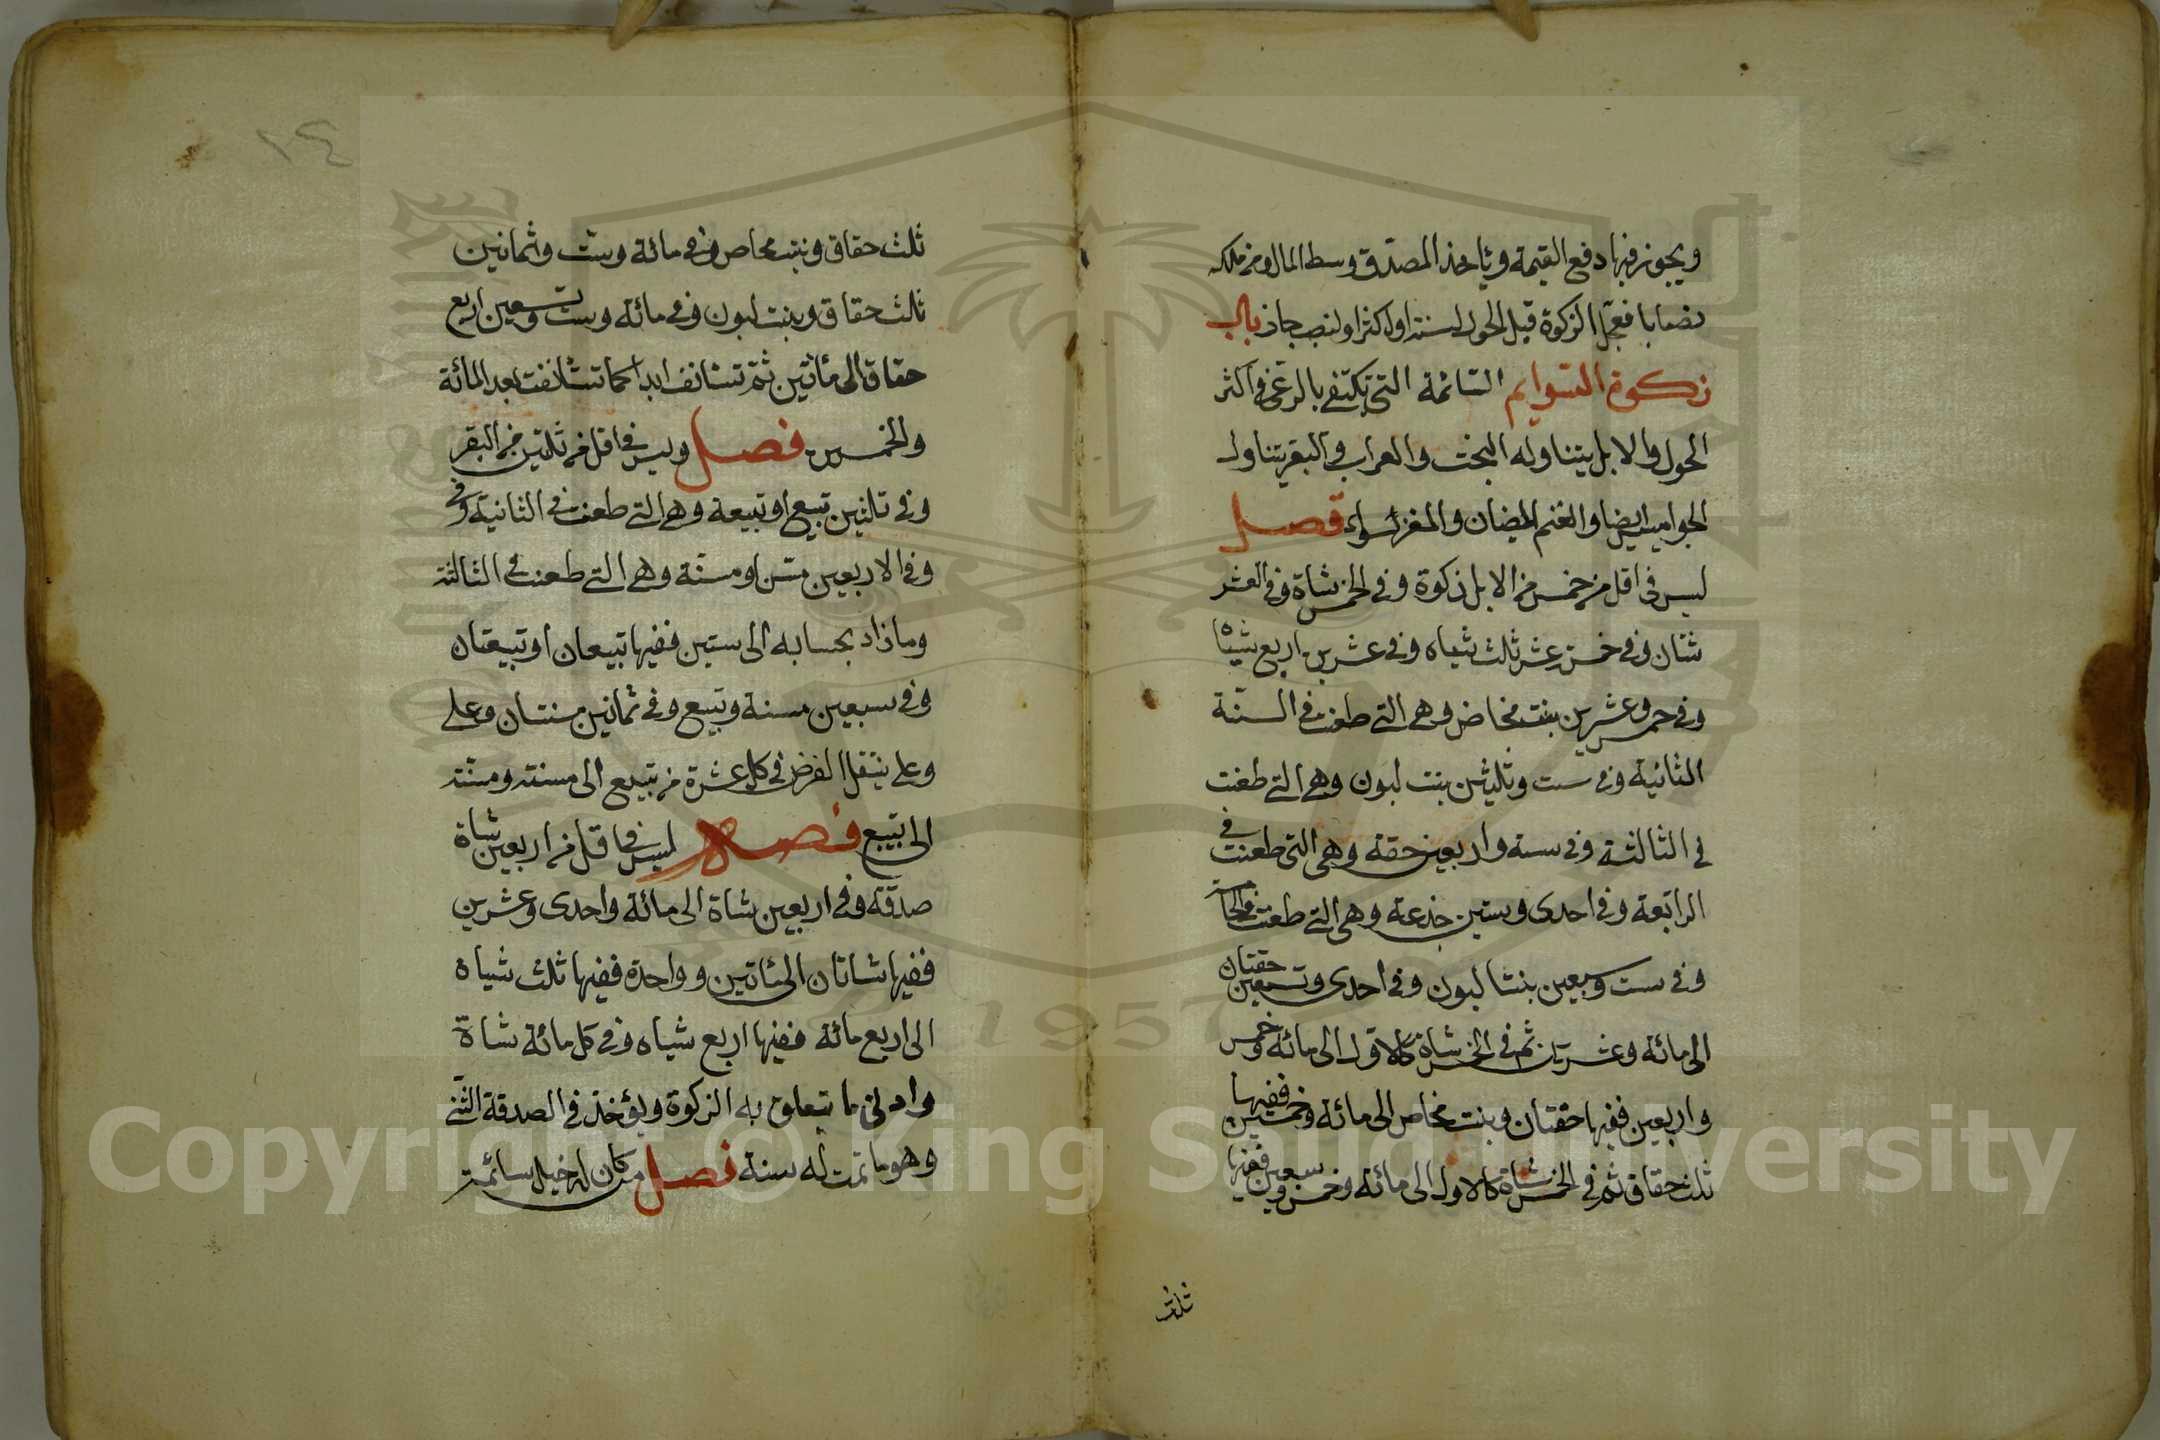 ويجوز فيها دفع القيمة ويأخذ المصدق وسط المال ومن ملك
نصابا فعجل الزكوة قبل الحول لسنة او اكثر او لنصب جاز باب
زكوة السوايم السائمة التي تكتفي بالرعي في اكثر
الحول والابل يتناوله البخت والعراب والبقر يتناول
الجواميس ايضا والغنم الضان والمعز سواء فصل
ليس في اقل من خمس من الابل زكوة وفي الخمس شاة وفي العشر
شتان وفي خمسة عشر ثلث شياه وفي عشرين اربع شياه
وفي خمس وعشرين بنت مخاض وهي التي طعنت في السنة
الثانية وفي ست وثلثين بنت لبون وهي التي طعنت
في الثالثة وفي ستة واربعين حقة وهي التي طعنت في
الرابعة وفي احدى وستين جذعة وهي التي طعنت في الخامسة
وفي ست وسبعين بنتا لبون وفي احدى وتسعين حقتان
الى مائة وعشرين ثم في الخمس شاة كالاول الى مائة وخمس
واربعين ففيها حقتان وبنت مخاض الى مائة وخمسين ففيها
ثلث حقاق ثم في الخمس شاة كالاول الى مائة وخمس وسبعين ففيها
ثلث
١٤
ثلث حقاق وبنت مخاض وفي مائة وست وثمانين
ثلث حقاق وبنت لبون وفي مائة وست وتسعين اربع
حقاق الى مأتين ثم تستانف ابدا كما تستانفت بعد المائة
والخمسين فصل وليس في اقل من ثلثين من البقر
وفي ثلثين تبيع او تبيعة وهي التي طعنت في الثانية وفي
وفي الاربعين مسن او مسنة وهي التي طعنت في الثالثة
وما زاد بحسابه الى ستين ففيها تبيعان او تبيعتان
وفي سبعين مسنة وتبيع وفي ثمانين مسنتان وعلى
وعلى ينتقل الفرض في كل عشرة من تبيع الى مسنة ومسنة
الى تبيع فصل ليس في اقل من اربعين شاة
صدقة وفي اربعين شاة الى مائة واحدى وعشرين
ففيها شاتان الى مئاتين وواحدة ففيها ثلث شياه
الى اربع مائة ففيها اربع شياه وفي كل مائة شاة
وادنى ما يتعلق به الزكوة ويؤخذ في الصدقة الثني
وهو ما تمت له سنة فصل من كان له خيل سائمة
1957
Copyright © King Saud University